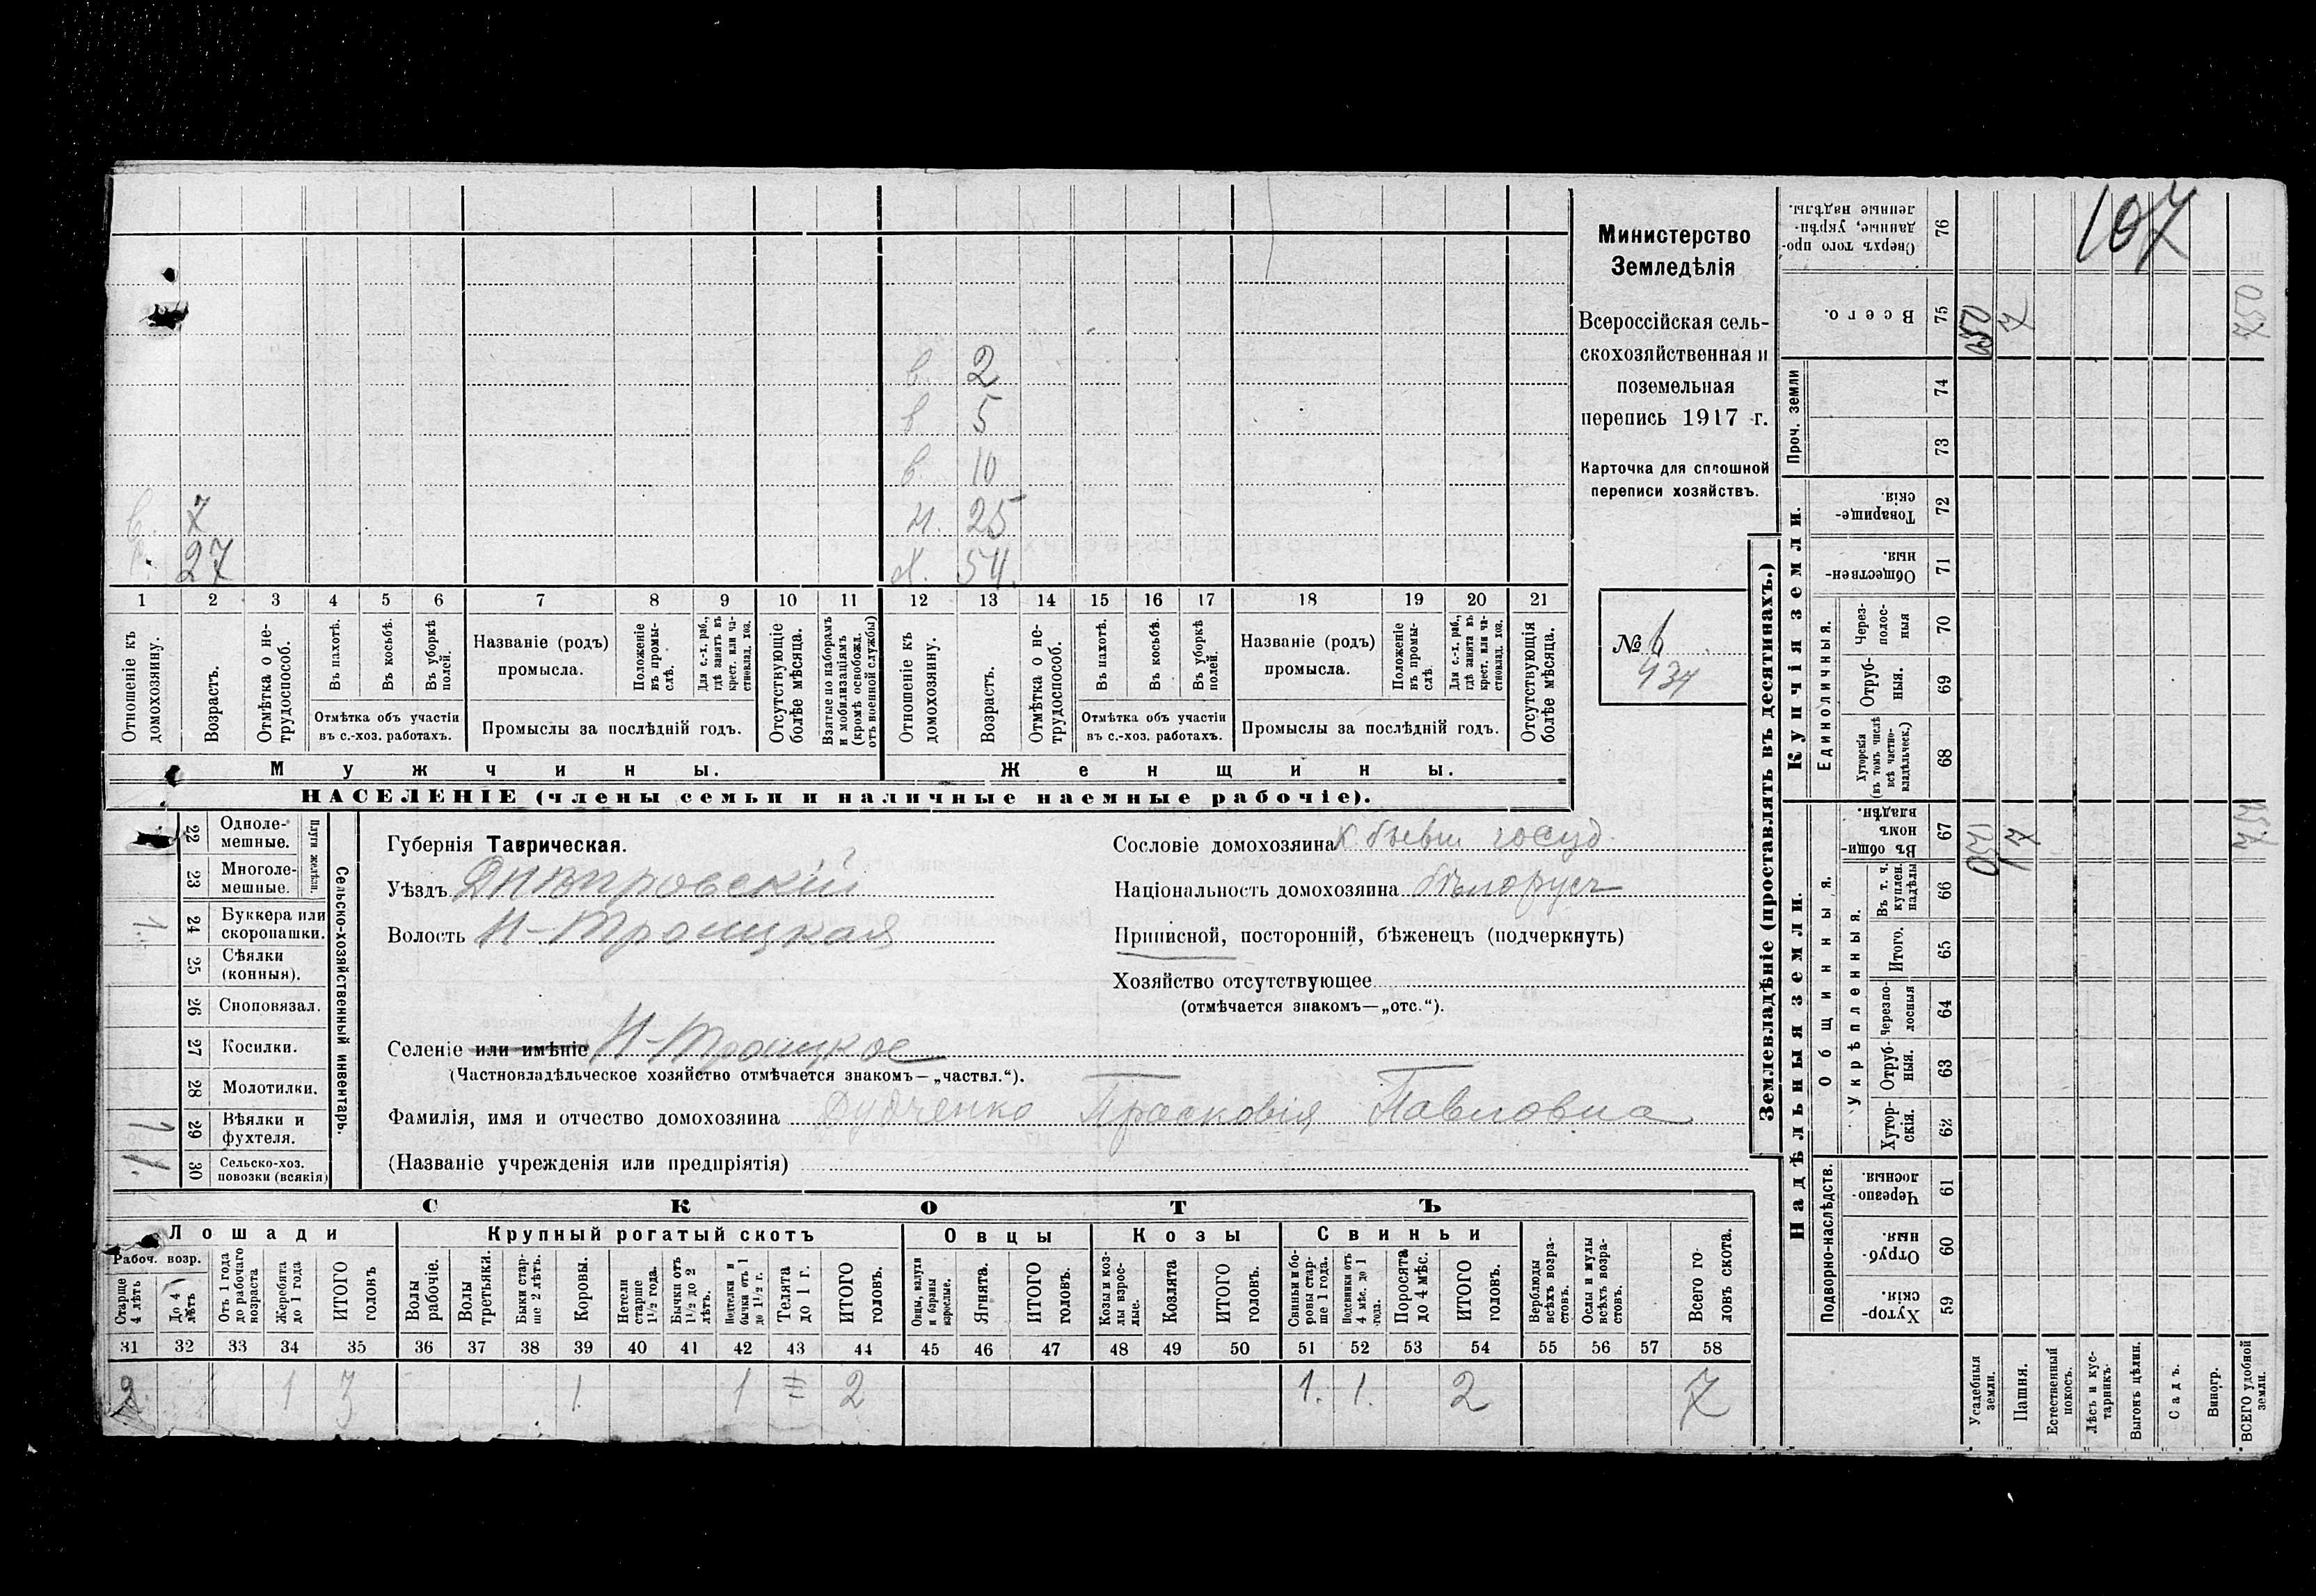 Министерство
Земледѣлія
Всероссійская сель-
скохозяйственная и
поземельная
перепись 1917 г.
Карточка для сплошной
переписи хозяйствъ.
№ 6
434
в. 2
в 5
в. 10
в. 7 н. 25
27 х. 54.
1 2 3 4 5 6 7 8 9 10 11 12 13 14 15 16 17 18 19 20 21
Отношеніе къ домохозяину.
Возрастъ.
Отмѣтка о не-трудоспособ.
Въ пахотѣ.
Въ косьбѣ.
Въ уборкѣ полей.
Отмѣтка объ участіи
въ с.-хоз. работахъ.
Названіе (родъ)
промысла.
Положеніе въ промы-слѣ.
Для с.-х. раб., гдѣ занятъ въ крест. или ча-стновлад. хоз.
Промыслы за послѣдній годъ.
Отсутствующіе болѣе мѣсяца.
Взятые по наборамъ и мобилизаціямъ (кромѣ освобожд. отъ военной службы)
Отношеніе къ домохозяину.
Возрастъ.
Отмѣтка о не-трудоспособ.
Въ пахотѣ.
Въ косьбѣ.
Въ уборкѣ полей.
Отмѣтка объ участіи
въ с.-хоз. работахъ.
Названіе (родъ)
промысла.
Положеніе въ промы-слѣ.
Для с.-х. раб., гдѣ занята въ крест. или ча-стновлад. хоз.
Промыслы за послѣдній годъ.
Отсутствующія болѣе мѣсяца.
Мужчины. Женщины.
НАСЕЛЕНІЕ (члены семьи и наличные наемные рабочіе).
Сельско-хозяйственный инвентарь.
Плуги желѣзн.
22 Одноле-мешные.
23 Многоле-мешные.
1 24 Буккера или скоропашки.
25 Сѣялки (конныя).
26 Сноповязал.
27 Косилки.
28 Молотилки.
1 29 Вѣялки и фухтеля.
1 30 Сельско-хоз. повозки (всякія)
Губернія Таврическая.
Уѣздъ Днѣпровскій
Волость Н-Троицкая
Селеніе или имѣніе Н-Троицкое
(Частновладѣльческое хозяйство отмѣчается знакомъ—„частвл.“).
Фамилія, имя и отчество домохозяина Дудченко Прасковія Павловна
(Названіе учрежденія или предпріятія)
Сословіе домохозяина к бывш госуд.
Національность домохозяина бѣлорусъ
Приписной, посторонній, бѣженецъ (подчеркнуть)
Хозяйство отсутствующее
(отмѣчается знакомъ—„отс.“).
СКОТЪ
Лошади Крупный рогатый скотъ Овцы Козы Свиньи
Рабоч. возр.
Старше 4 лѣтъ
До 4 лѣтъ
Отъ 1 года до рабочаго возраста
Жеребята до 1 года
ИТОГО головъ
Волы рабочіе.
Волы третьяки.
Быки стар-ше 2 лѣтъ.
Коровы.
Нетели старше 1½ года.
Бычки отъ 1½ до 2 лѣтъ.
Подтелки и бычки отъ 1 до 1½ г.
Телята до 1 г.
ИТОГО головъ.
Овцы, валухи и бараны взрослые.
Ягнята.
ИТОГО головъ.
Козы и коз-лы взрос-лые.
Козлята
ИТОГО головъ.
Свиньи и бо-ровы стар-ше 1 года.
Подсвинки отъ 4 мѣс. до 1 года.
Поросята до 4 мѣс.
ИТОГО головъ.
Верблюды всѣхъ возра-стовъ.
Ослы и мулы всѣхъ возра-стовъ.
Всего го-ловъ скота.
31 32 33 34 35 36 37 38 39 40 41 42 43 44 45 46 47 48 49 50 51 52 53 54 55 56 57 58
2 1 3 1. 1 = 2 1. 1. 2 7
Землевладѣніе (проставлять въ десятинахъ.)
107
Сверхъ того про-данные, укрѣп-ленные надѣлы. 76
Всего. 75 050 7 750
Проч. земли 74
73
Купчія земли.
Товарище-скія. 72
Обществен-ныя. 71
Единоличныя.
Через-полос-ныя 70
Отруб-ныя. 69
Хуторскія (въ томъ числѣ всѣ частно-владѣльческ.) 68
Надѣльныя земли.
Общинныя.
Въ общин-номъ владѣн. 67 050 7 750
Укрѣпленныя.
Въ т. ч. куплен. надѣлы 66
Итого. 65
Черезпо-лосныя 64
Отруб-ныя. 63
Хутор-скія. 62
Подворно-наслѣдств.
Черезпо-лосныя. 61
Отруб-ныя. 60
Хутор-скія. 59
Усадебныя земли.
Пашня.
Естественный покосъ.
Лѣсъ и кус-тарникъ.
Выгонъ цѣлин.
Садъ.
Виногр.
ВСЕГО удобной земли.